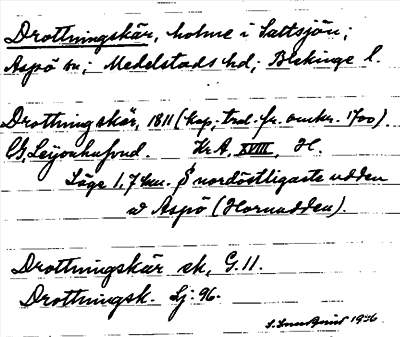 Drottningskär, holme i Saltsjön;
Aspö sn; Medelstads hd; Blekinge l.
Drottningskär, 1811 (kop; trol. fr. omkr. 1700)
CG, Leijonhufvud. Kr A, XVIII, H.
Läge 1,7 km. S nordöstligaste udden
av Aspö (Hornudden).
Drottningskär ek, G. 11.
Drottningsk. Lj: 96.
1926